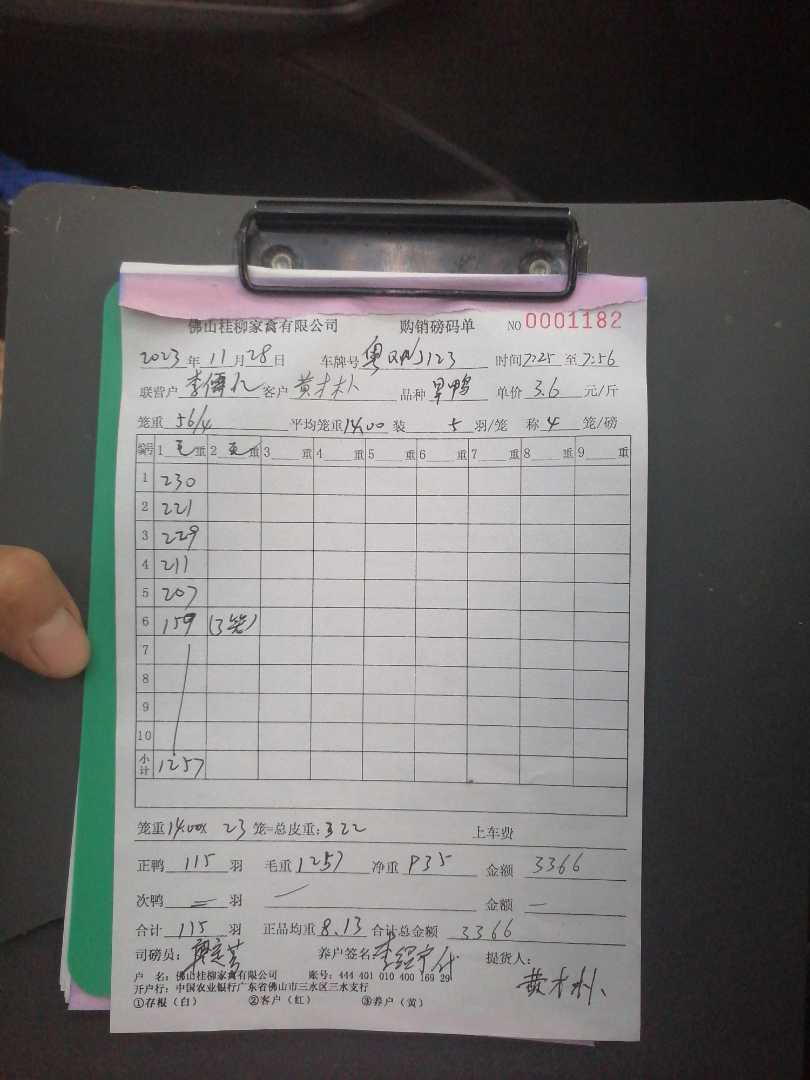 佛山桂柳家禽有限公司 购销磅码单 NO 0001182
2023年11月28日 车牌号 粤 J123 时间 7:25 至 7:56
联营户 李 客户 黄木朴 品种 旱鸭 单价 3.6 元/斤
笼重 56/4 平均笼重 14.00 装 5 羽/笼 称 4 笼/磅
编号 1 毛 重 2 重 3 重 4 重 5 重 6 重 7 重 8 重 9 重
1 230
2 221
3 229
4 211
5 207
6 159 (3笼)
7
8
9
10
小计 1257
笼重 14.00x 23 笼=总皮重: 322 上车费
正鸭 115 羽 毛重 1257 净重 935 金额 3366
次鸭 = 羽 — 金额 —
合计 115 羽 正品均重 8.13 合计总金额 3366
司磅员: 养户签名 李 代 提货人:
黄木朴
户 名: 佛山桂柳家禽有限公司 账号: 444 401 010 400 169 29
开户行: 中国农业银行广东省佛山市三水区三水支行
①存根(白) ②客户(红) ③养户(黄)